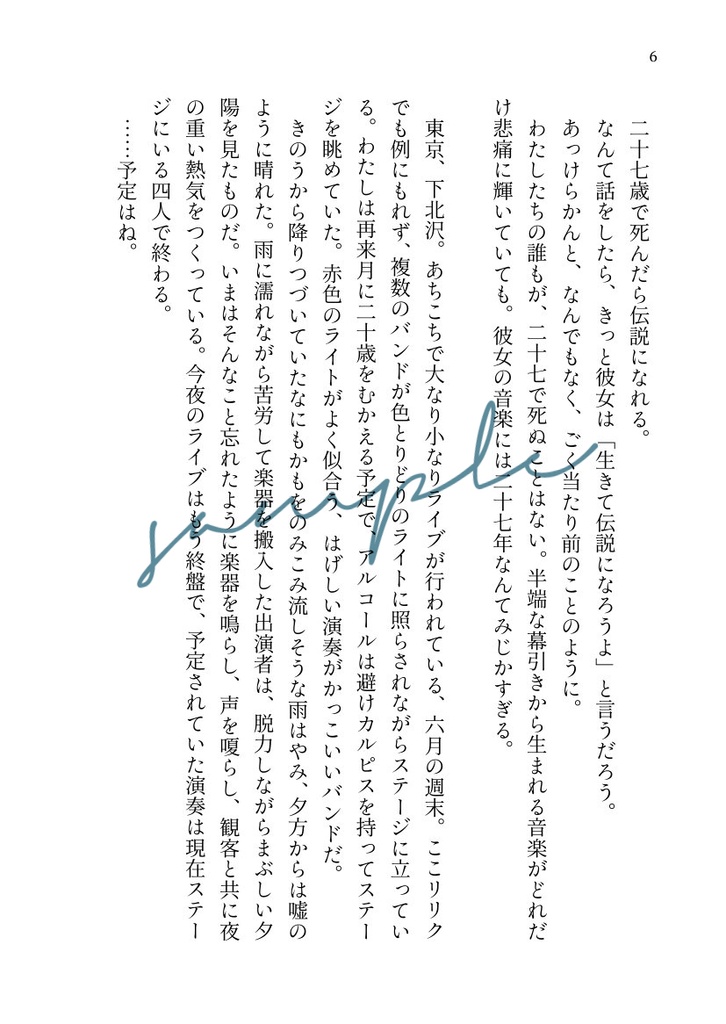 6
二十七歳で死んだら伝説になれる。
なんて話をしたら、きっと彼女は「生きて伝説になろうよ」と言うだろう。
あっけらかんと、なんでもなく、ごく当たり前のことのように。
わたしたちの誰もが、二十七で死ぬことはない。半端な幕引きから生まれる音楽がどれだ
け悲痛に輝いていても。彼女の音楽には二十七年なんてみじかすぎる。
東京、下北沢。あちこちで大なり小なりライブが行われている、六月の週末。ここリリク
でも例にもれず、複数のバンドが色とりどりのライトに照らされながらステージに立ってい
る。わたしは再来月に二十歳をむかえる予定で、アルコールは避けカルピスを持ってステー
ジを眺めていた。赤色のライトがよく似合う、はげしい演奏がかっこいいバンドだ。
きのうから降りつづいていたなにもかもをのみこみ流しそうな雨はやみ、夕方からは嘘の
ように晴れた。雨に濡れながら苦労して楽器を搬入した出演者は、脱力しながらまぶしい夕
陽を見たものだ。いまはそんなこと忘れたように楽器を鳴らし、声を嗄らし、観客と共に夜
の重い熱気をつくっている。今夜のライブはもう終盤で、予定されていた演奏は現在ステー
ジにいる四人で終わる。
……予定はね。
sample